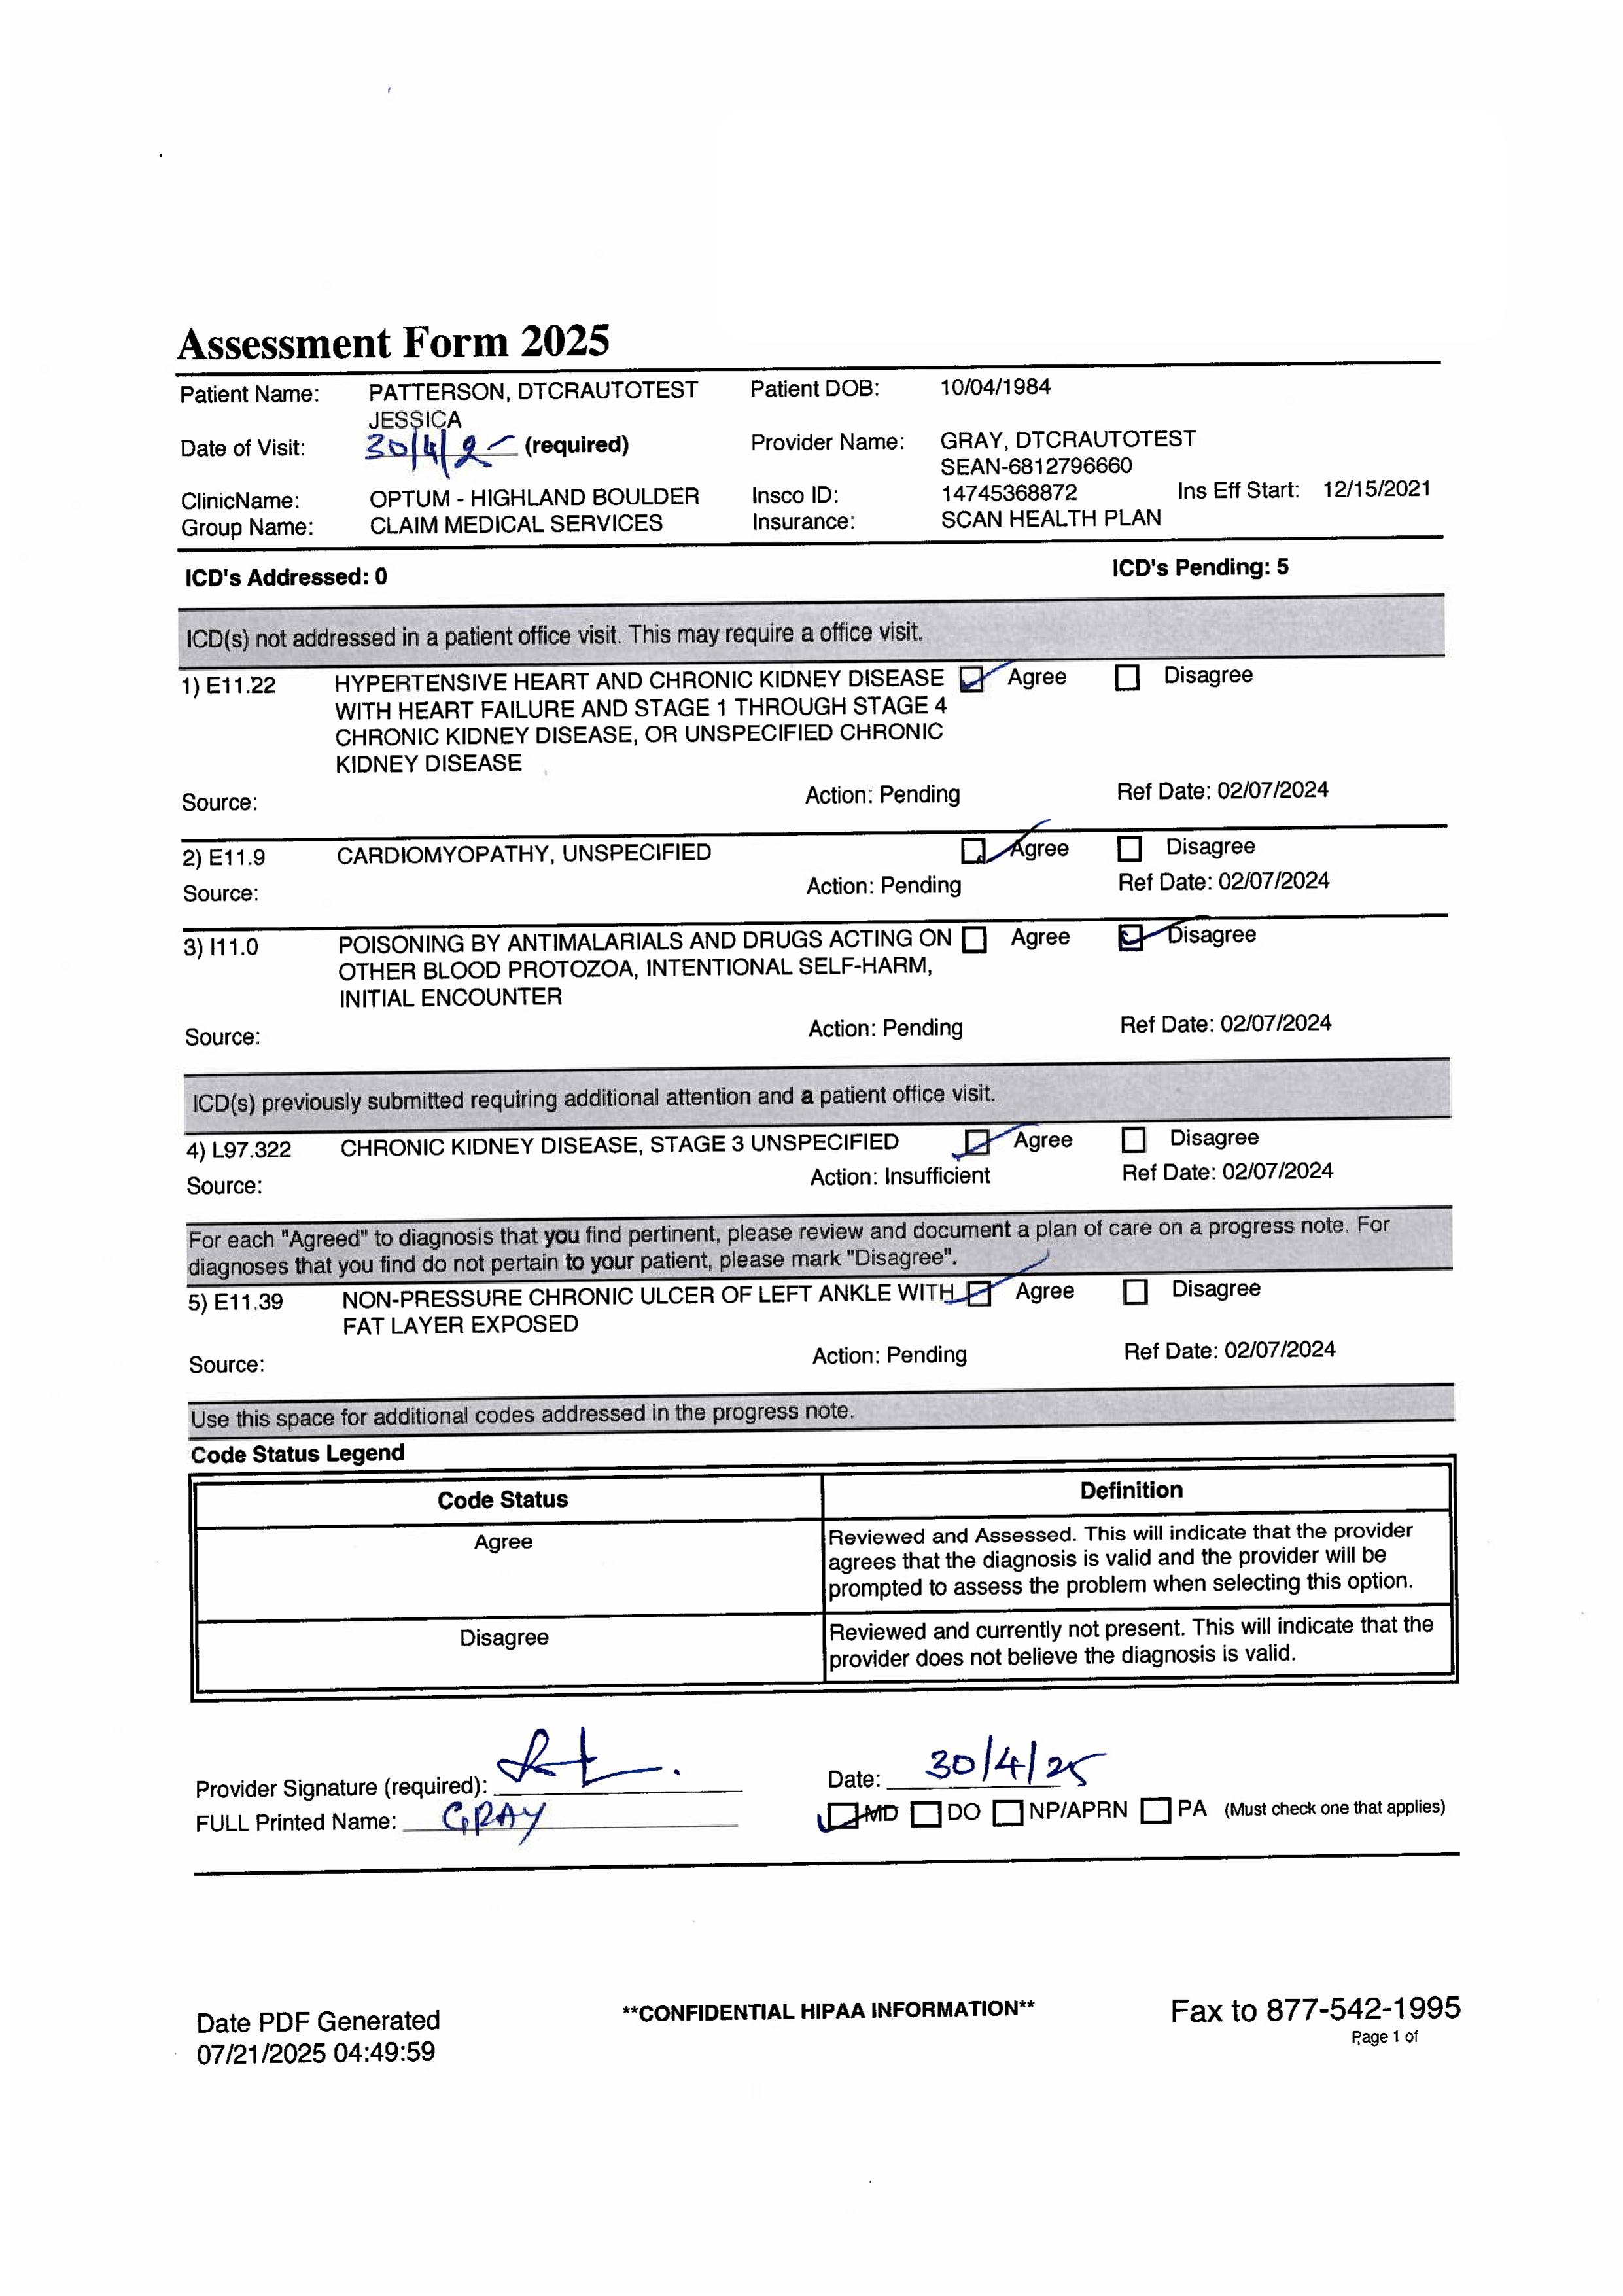 Assessment Form 2025
Patient Name: PATTERSON, DTCRAUTOTEST JESSICA Patient DOB: 10/04/1984
Date of Visit: 30/4/2 (required) Provider Name: GRAY, DTCRAUTOTEST SEAN-6812796660
ClinicName: OPTUM - HIGHLAND BOULDER Insco ID: 14745368872 Ins Eff Start: 12/15/2021
Group Name: CLAIM MEDICAL SERVICES Insurance: SCAN HEALTH PLAN
ICD's Addressed: 0 ICD's Pending: 5
ICD(s) not addressed in a patient office visit. This may require a office visit.
1) E11.22 HYPERTENSIVE HEART AND CHRONIC KIDNEY DISEASE Agree Disagree
WITH HEART FAILURE AND STAGE 1 THROUGH STAGE 4
CHRONIC KIDNEY DISEASE, OR UNSPECIFIED CHRONIC
KIDNEY DISEASE
Source: Action: Pending Ref Date: 02/07/2024
2) E11.9 CARDIOMYOPATHY, UNSPECIFIED Agree Disagree
Source: Action: Pending Ref Date: 02/07/2024
3) I11.0 POISONING BY ANTIMALARIALS AND DRUGS ACTING ON Agree Disagree
OTHER BLOOD PROTOZOA, INTENTIONAL SELF-HARM,
INITIAL ENCOUNTER
Source: Action: Pending Ref Date: 02/07/2024
ICD(s) previously submitted requiring additional attention and a patient office visit.
4) L97.322 CHRONIC KIDNEY DISEASE, STAGE 3 UNSPECIFIED Agree Disagree
Source: Action: Insufficient Ref Date: 02/07/2024
For each "Agreed" to diagnosis that you find pertinent, please review and document a plan of care on a progress note. For
diagnoses that you find do not pertain to your patient, please mark "Disagree".
5) E11.39 NON-PRESSURE CHRONIC ULCER OF LEFT ANKLE WITH Agree Disagree
FAT LAYER EXPOSED
Source: Action: Pending Ref Date: 02/07/2024
Use this space for additional codes addressed in the progress note.
Code Status Legend
Code Status Definition
Agree Reviewed and Assessed. This will indicate that the provider
agrees that the diagnosis is valid and the provider will be
prompted to assess the problem when selecting this option.
Disagree Reviewed and currently not present. This will indicate that the
provider does not believe the diagnosis is valid.
Provider Signature (required): Date: 30/4/25
FULL Printed Name: GRAY MD DO NP/APRN PA (Must check one that applies)
Date PDF Generated **CONFIDENTIAL HIPAA INFORMATION** Fax to 877-542-1995
07/21/2025 04:49:59 Page 1 of